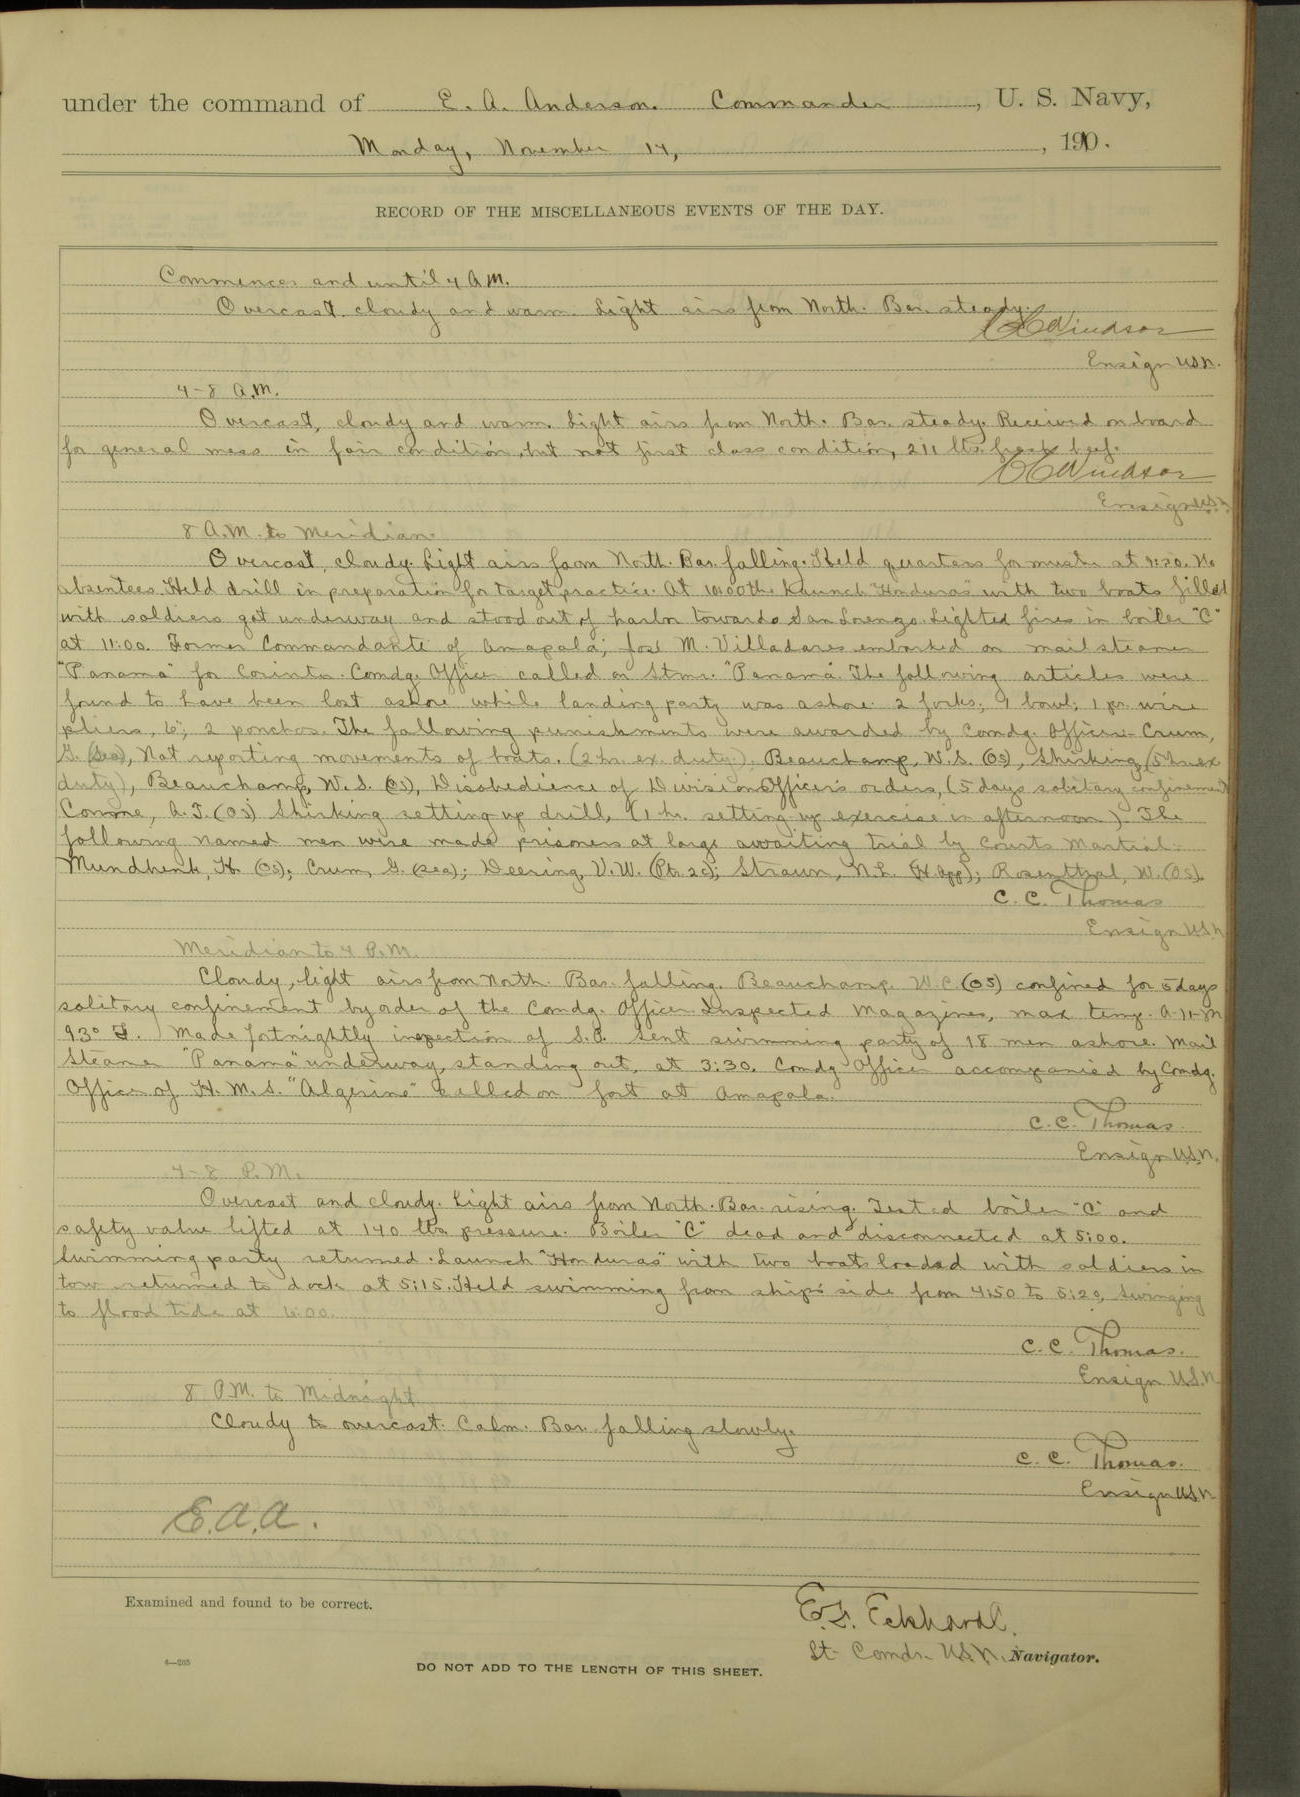 under the command of E. A. Anderson. Commander, U. S. Navy,
Monday, November 14, 1910.
RECORD OF THE MISCELLANEOUS EVENTS OF THE DAY.
Commences and until 4 A.M.
Overcast, cloudy and warm. Light airs from North. Bar. steady.
Windsor
Ensign U.S.N.
4-8 A.M.
Overcast, cloudy and warm. Light airs from North. Bar. steady. Received on board
for general mess in fair condition, but not first class condition, 211 lbs. fresh beef.
Windsor
Ensign U.S.N.
8 A.M. to Meridian.
Overcast, cloudy. Light airs from North. Bar. falling. Held quarters for muster at 9:20. No
absentees. Held drill in preparation for target practice. At 10:00 the launch "Honduras" with two boats filled
with soldiers got underway and stood out of harbor towards San Lorenzo. Lighted fires in boiler "C"
at 11:00. Former Commandante of Amapala; José M. Villadares embarked on mail steamer
"Panama" for Corinto. Comdg. Officer called on Stmr. "Panama". The following articles were
found to have been lost ashore while landing party was ashore. 2 forks; 1 bowl; 1 pr. wire
pliers, 6"; 2 ponchos. The following punishments were awarded by Comdg. Officer:- Crum,
G. (Sea), Not reporting movements of boats. (2 hr. ex. duty.). Beauchamp, W.S. (OS), Shirking, (5 hr. ex
duty), Beauchamp, W.S. (OS), Disobedience of Division Officer's orders, (5 days solitary confinement)
A.J. (OS) Shirking setting up drill, (1 hr. setting up exercise in afternoon). The
following named men were made prisoners at large awaiting trial by Courts Martial:-
Mundhenk, H. (OS); Crum, G. (Sea); Deering, V.W. (Ptr. 2c); Straun, N.L. (H.App); Rosenthal, W. (OS).
C. C. Thomas
Ensign U.S.N.
Meridian to 4 P.M.
Cloudy, light airs from North. Bar. falling. Beauchamp W.C. (OS) confined for 5 days
solitary confinement by order of the Comdg. Officer. Inspected Magazines, max temp. A-11-M
93° F. Made fortnightly inspection of S.P. Sent swimming party of 18 men ashore. Mail
Steamer "Panama" underway, standing out, at 3:30. Comdg Officer accompanied by Comdg.
Officer of H.M.S. "Algerine" called on fort at Amapala.
C. C. Thomas
Ensign U.S.N.
4-8 P.M.
Overcast and cloudy. Light airs from North. Bar. rising. Tested boiler "C" and
safety valve lifted at 140 lbs. pressure. Boiler "C" dead and disconnected at 5:00.
Swimming party returned. Launch "Honduras" with two boats loaded with soldiers in
tow returned to dock at 5:15. Held swimming from ship's side from 4:50 to 5:20, Swinging
to flood tide at 6:00.
C. C. Thomas.
Ensign U.S.N.
8 P.M. to Midnight
Cloudy to overcast. Calm. Bar. falling slowly.
C. C. Thomas.
Ensign U.S.N
E.A.A.
Examined and found to be correct.
Eckhardt.
Lt. Comdr. U.S.N. Navigator.
DO NOT ADD TO THE LENGTH OF THIS SHEET.